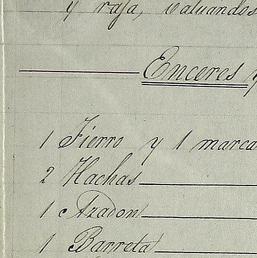 y raja, valuandos
Enceres y
1 Fierro y 1 marca
2 Hachas
1 Azadon
1 Barreta